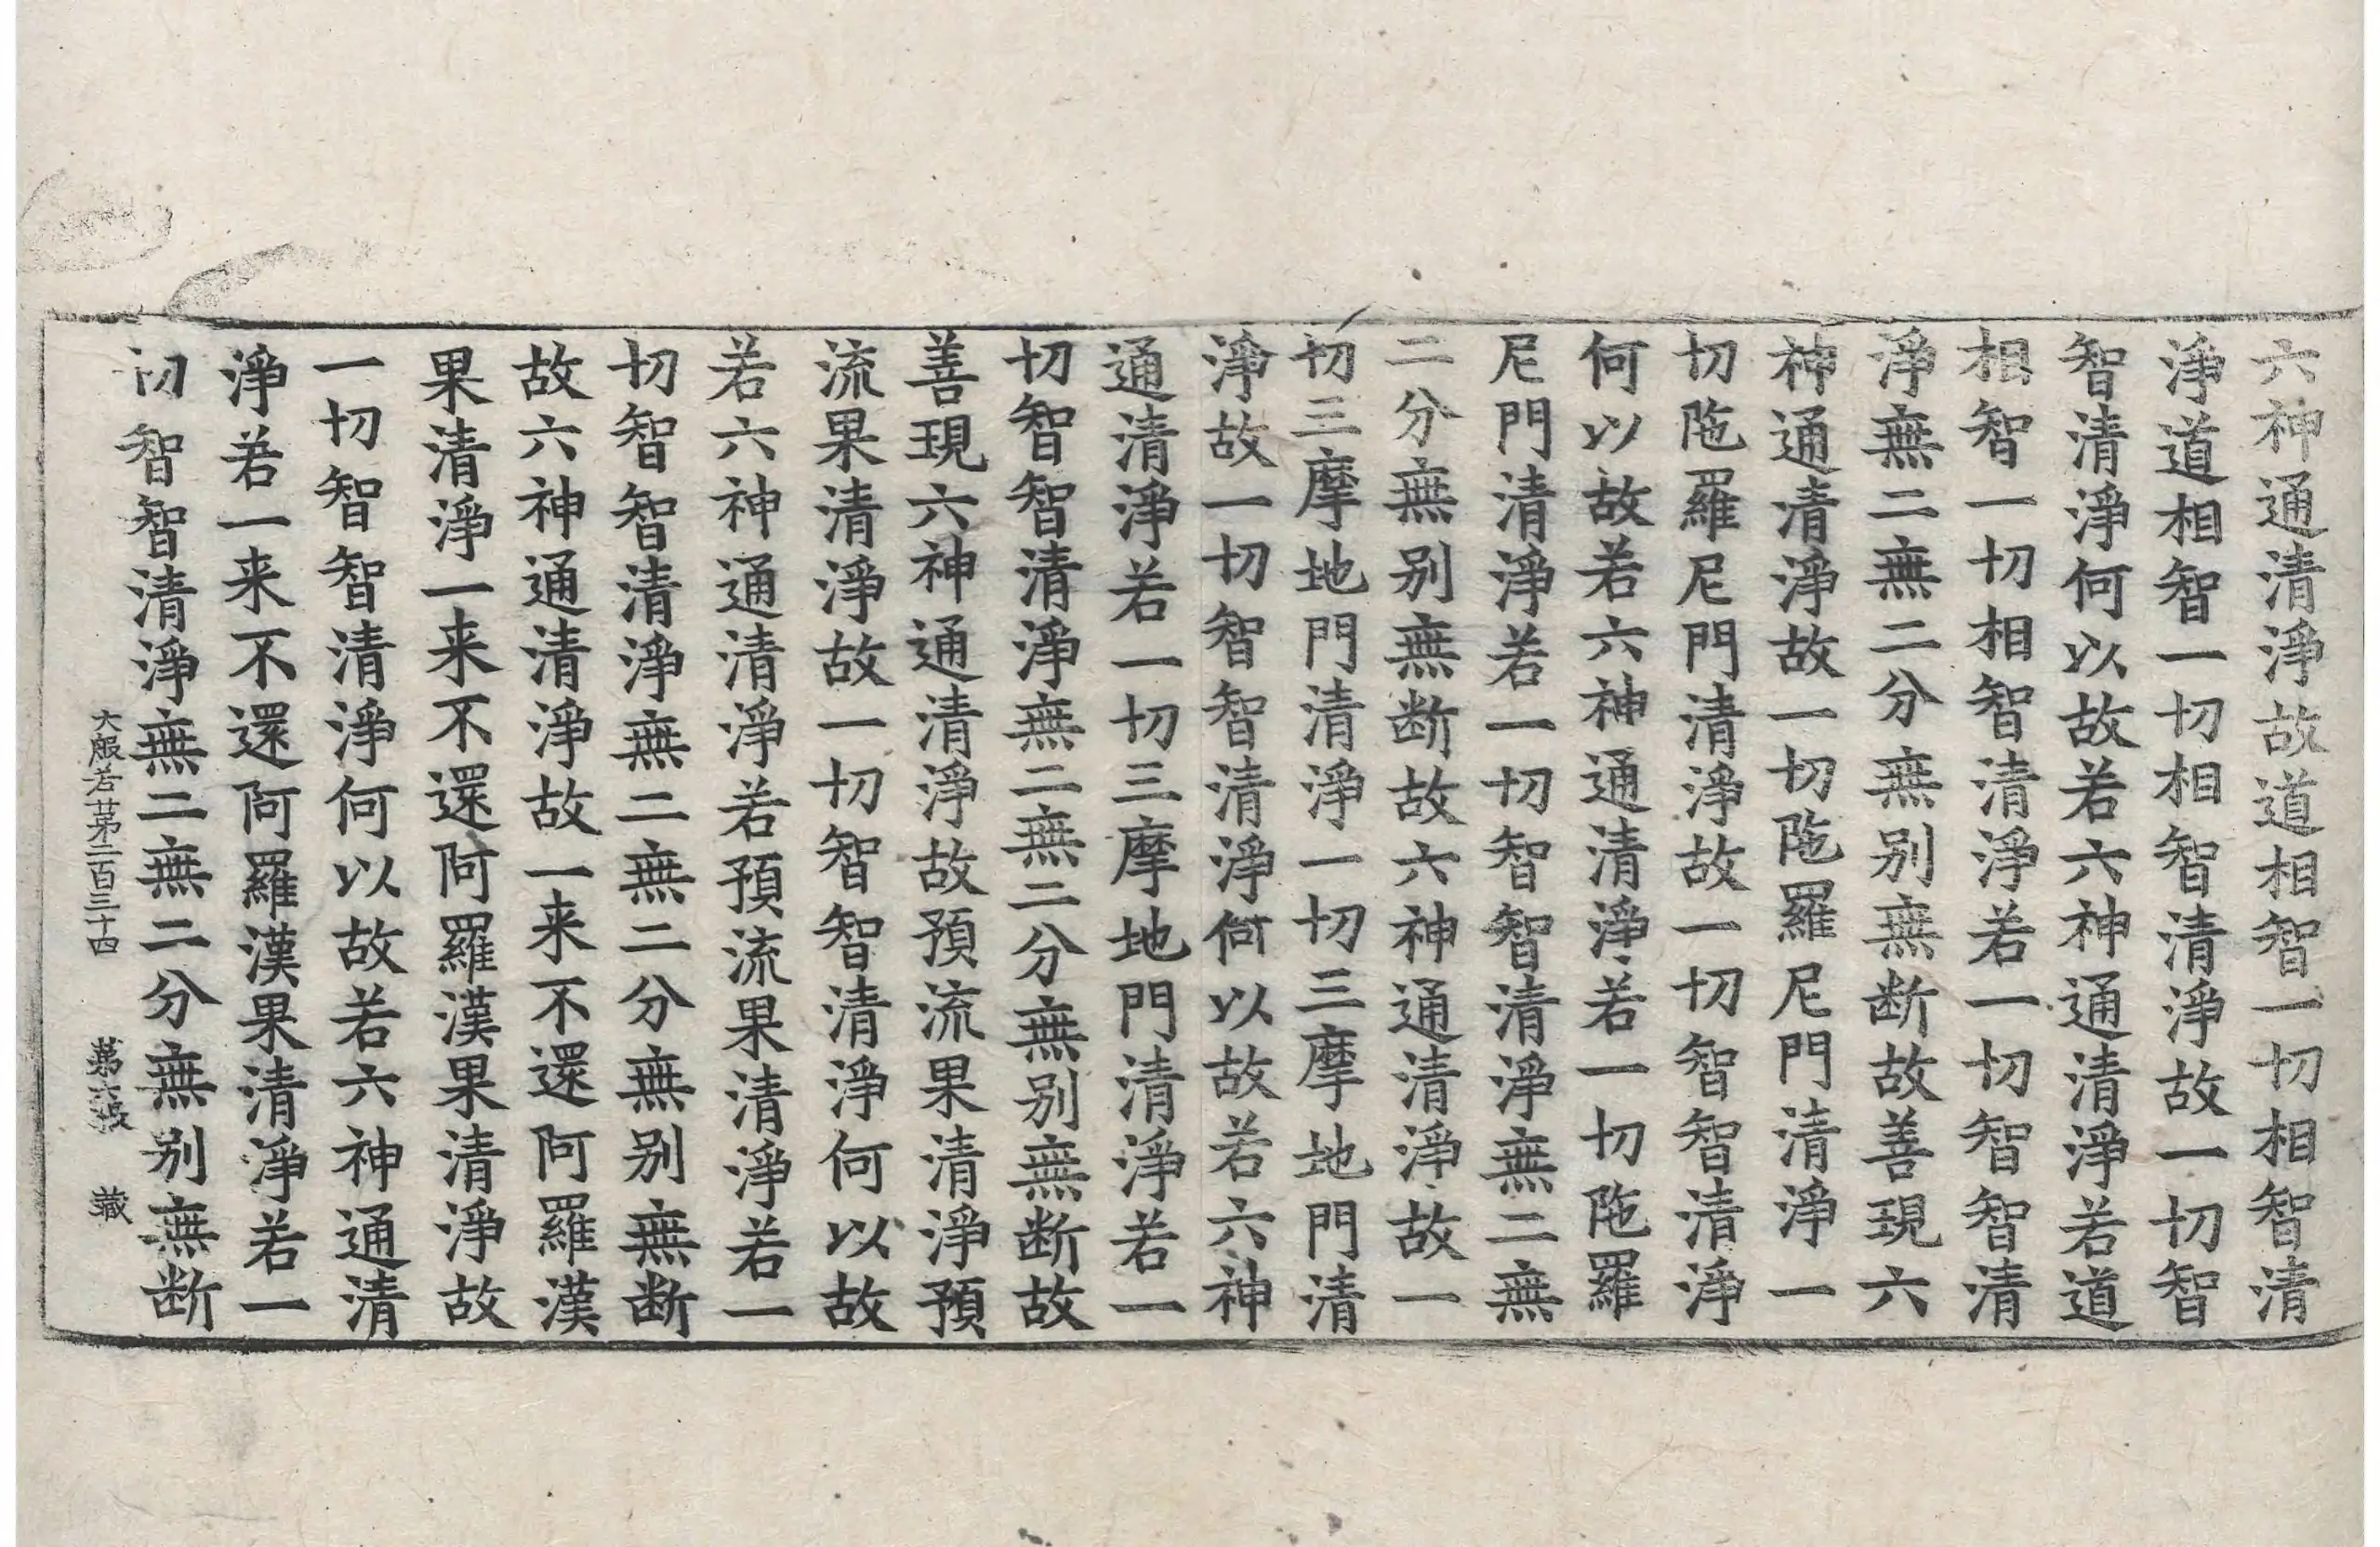 六神通清淨故道相智一切相智清
淨道相智一切相智清淨故一切智
智清淨何以故若六神通清淨若道
相智一切相智清淨若一切智智清
淨無二無二分無别無断故善現六
神通清淨故一切陁羅尼門清淨一
切陁羅尼門清淨故一切智智清淨
何以故若六神通清淨若一切陁羅
尼門清淨若一切智智清淨無二無
二分無别無断故六神通清淨故一
切三摩地門清淨一切三摩地門清
淨故一切智智清淨何以故若六神
通清淨若一切三摩地門清淨若一
切智智清淨無二無二分無别無断故
善現六神通清淨故預流果清淨預
流果清淨故一切智智清淨何以故
若六神通清淨若預流果清淨若一
切智智清淨無二無二分無别無断
故六神通清淨故一来不還阿羅漢
果清淨一来不還阿羅漢果清淨故
一切智智清淨何以故若六神通清
淨若一来不還阿羅漢果清淨若一
切智智清淨無二無二分無别無断
大般若苐二百三十四 苐六張 藏